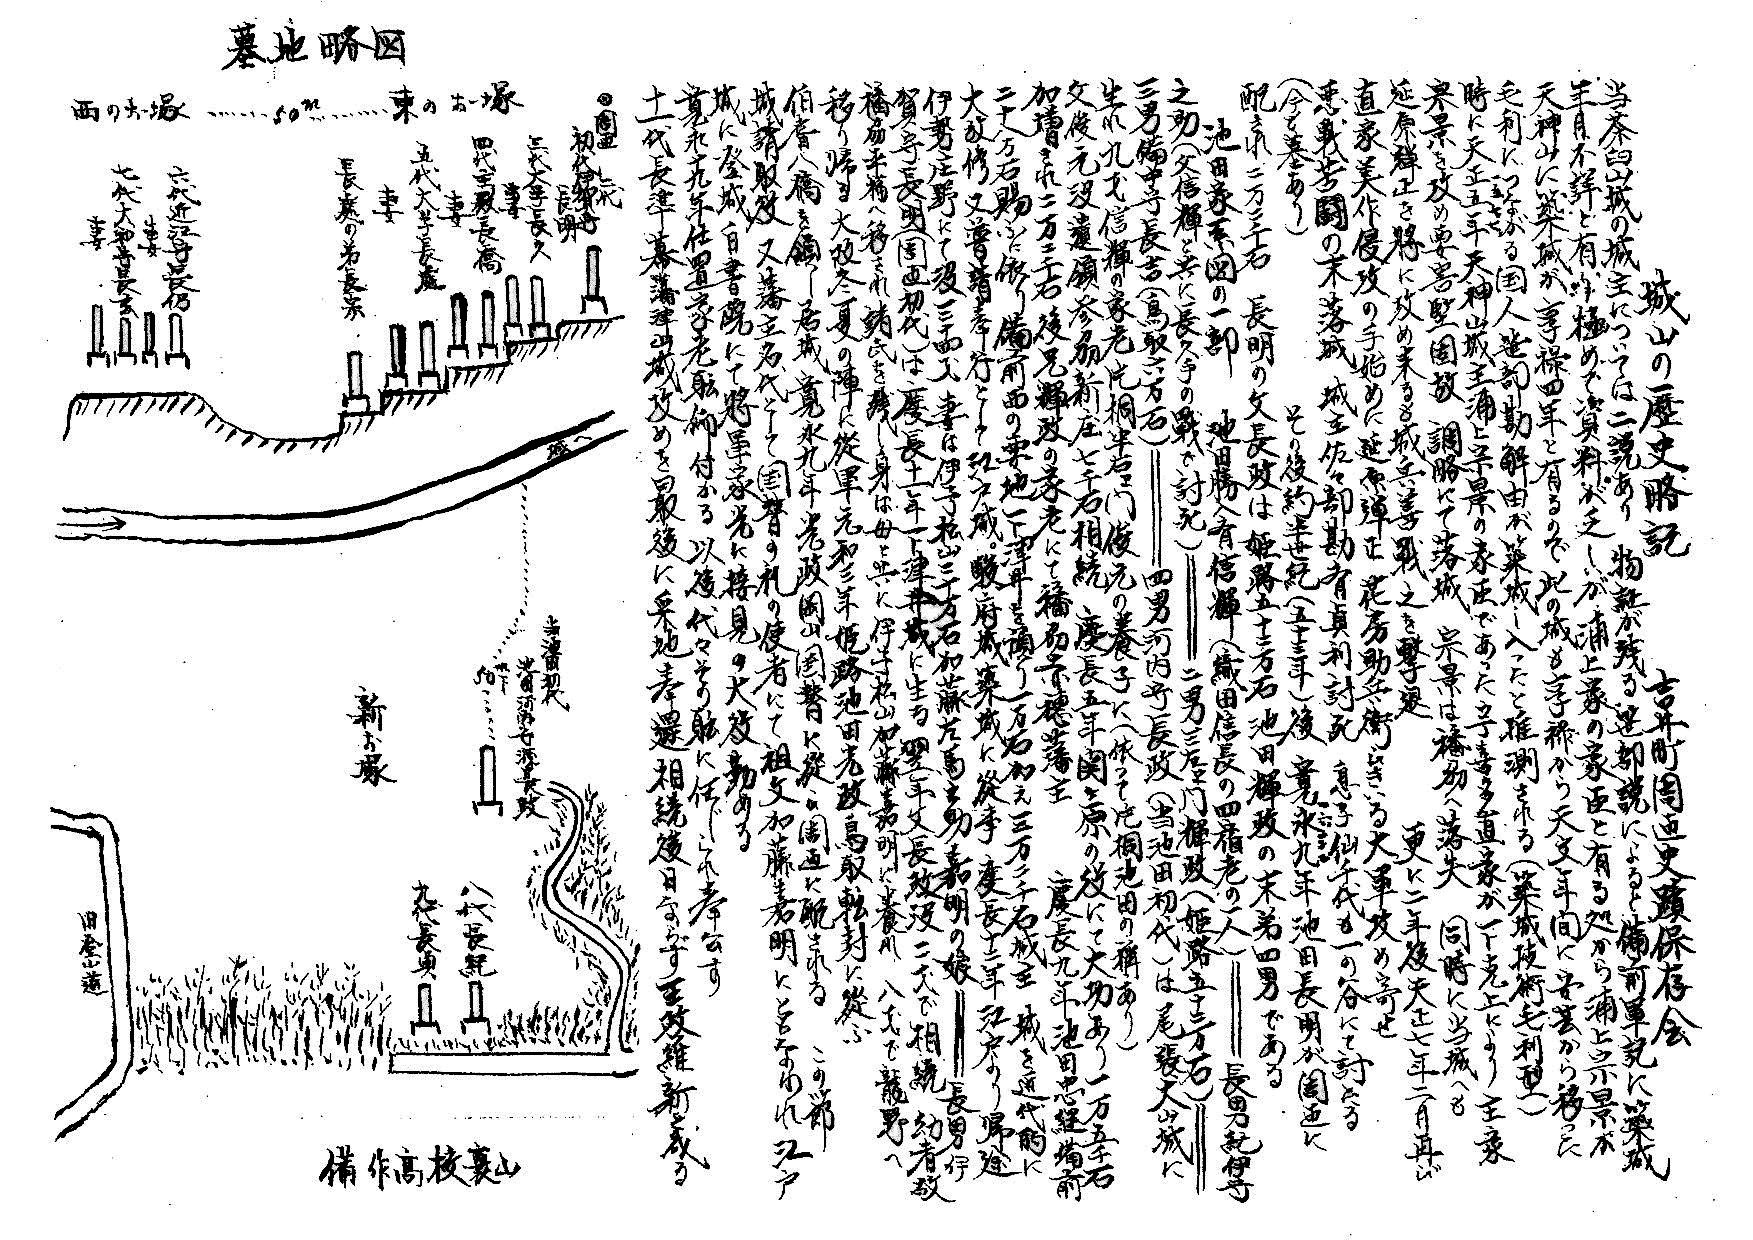 城山の歴史略記
吉井町周匝史蹟保存会
当茶臼山城の城主については二説あり 物証が残る笹部説によると備前軍記に築城
年月不詳と有り極めて資料が乏しいが浦上家の家臣と有る処から浦上宗景が
天神山に築城が享禄四年と有るので此の城も享禄から天文年間に
毛利につながる国人笹部勘解由が築城し入ったと推測される(築城技術毛利型)
時に天正五年天神山城主浦上宗景の家臣であった宇喜多直家が下克上により主家
宗景を攻め要害堅固故 調略にて落城 宗景は播州へ落失 同時に当城へも
延原弾正を将に攻め来るも城兵善戦之を撃退 更に二年後天正七年二月再び
直家美作侵攻の手始めに延原弾正 花房助兵衛ひきいる大軍攻め寄せ
悪戦苦闘の末落城 城主佐々部勘斉貞利討死 息子仙千代も一の谷にて討たる
(今も墓あり) その後約半世紀(五十三年)後 寛永九年池田長明が周匝に
配され二万二千石 長明の父長政は姫路五十二万石池田輝政の末弟四男である
池田家系図の一部 池田勝入斉信輝(織田信長の四宿老の一人) 長男紀伊守
之助(父信輝と共に長久手の戦で討死) 二男三左ヱ門輝政(姫路五十二万石)
三男備中守長吉(鳥取六万石) 四男河内守長政(当池田初代)は尾張犬山城に
生れ九才信輝の家老片桐半右ヱ門俊元の養子に(依って片桐池田の称あり)
父俊元没遺領参州新庄七千石相続 慶長五年関ヶ原の役にて大功あり一万五千石
加増され二万二千石 後兄輝政の家老にて播州赤穂藩主 慶長九年池田忠継備前
二十八万石賜ふに依り備前西の要地下津井を預り一万石加え三万二千石城主 城を近代的に
大改修 又普請奉行として江戸城 駿府城築城に従事 慶長十二年江戸より帰途
伊勢庄野にて没三十四才 妻は伊予松山二十万石加藤左馬之助嘉明の娘 長男伊
賀守長明(周匝初代)は慶長十一年下津井城に生る 翌年父長政没 二才で相続 幼者故
播州平福へ移され諸氏を残し身は母と共に伊予松山加藤嘉明に養れ 八才で龍野へ
移り帰る 大坂冬 夏の陣に従軍元和三年姫路池田光政鳥取転封に従ふ
伯耆八橋を領し居城 寛永九年光政岡山国替に従ひ周匝に配される この節
城請取役 又藩主名代として国替の礼の使者にて祖父加藤嘉明にともなわれ江戸
城に登城 白書院にて将軍家光に接見の大役勤める
寛永十九年仕置家老職仰付かる 以後代々その職に任じられ奉公す
十一代長準幕藩神山城攻めを最後に采地奉還相続後日ならず王政維新と成る
墓地略図
西のお塚 ……50m…… 東のお塚
周匝
初代伊賀守長明
二代
三代大学長久
妻
四代主殿長喬
妻
五代大学長処
妻
長処の弟長宗
六代近江守長仍
妻
七代大和守長玄
妻
城へ
当池田初代
池田河内守源長政
50m下
新お塚
八代長紀
九代長貞
旧登山道
備作高校裏山